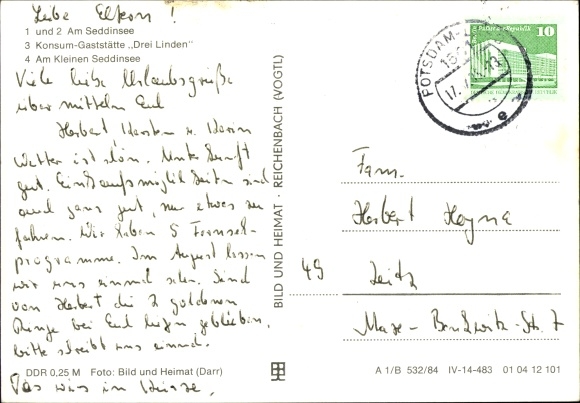 Liebe Eltern!
1 und 2 Am Seddinsee
3 Konsum-Gaststätte „Drei Linden"
4 Am Kleinen Seddinsee
Viele liebe Urlaubsgrüße
übermitteln Euch
Herbert Kersten u. Karin
Wetter ist schön. Unterkunft
gut. Einkaufsmöglichkeiten sind
auch ganz gut, nur etwas zu
fahren. Wir haben 5 Fernseh-
programme. Im August lassen
wir uns einmal sehen. Sind
von Herbert die 2 goldenen
Ringe bei Euch liegen geblieben,
bitte schreibt uns einmal.
Das wars in Kürze.
DDR 0,25 M Foto: Bild und Heimat (Darr)
BILD UND HEIMAT · REICHENBACH (VOGTL)
POTSDAM
17.
10
Fam.
Herbert Heyne
49 Zeitz
Str. 7
A 1/B 532/84 IV-14-483 01 04 12 101